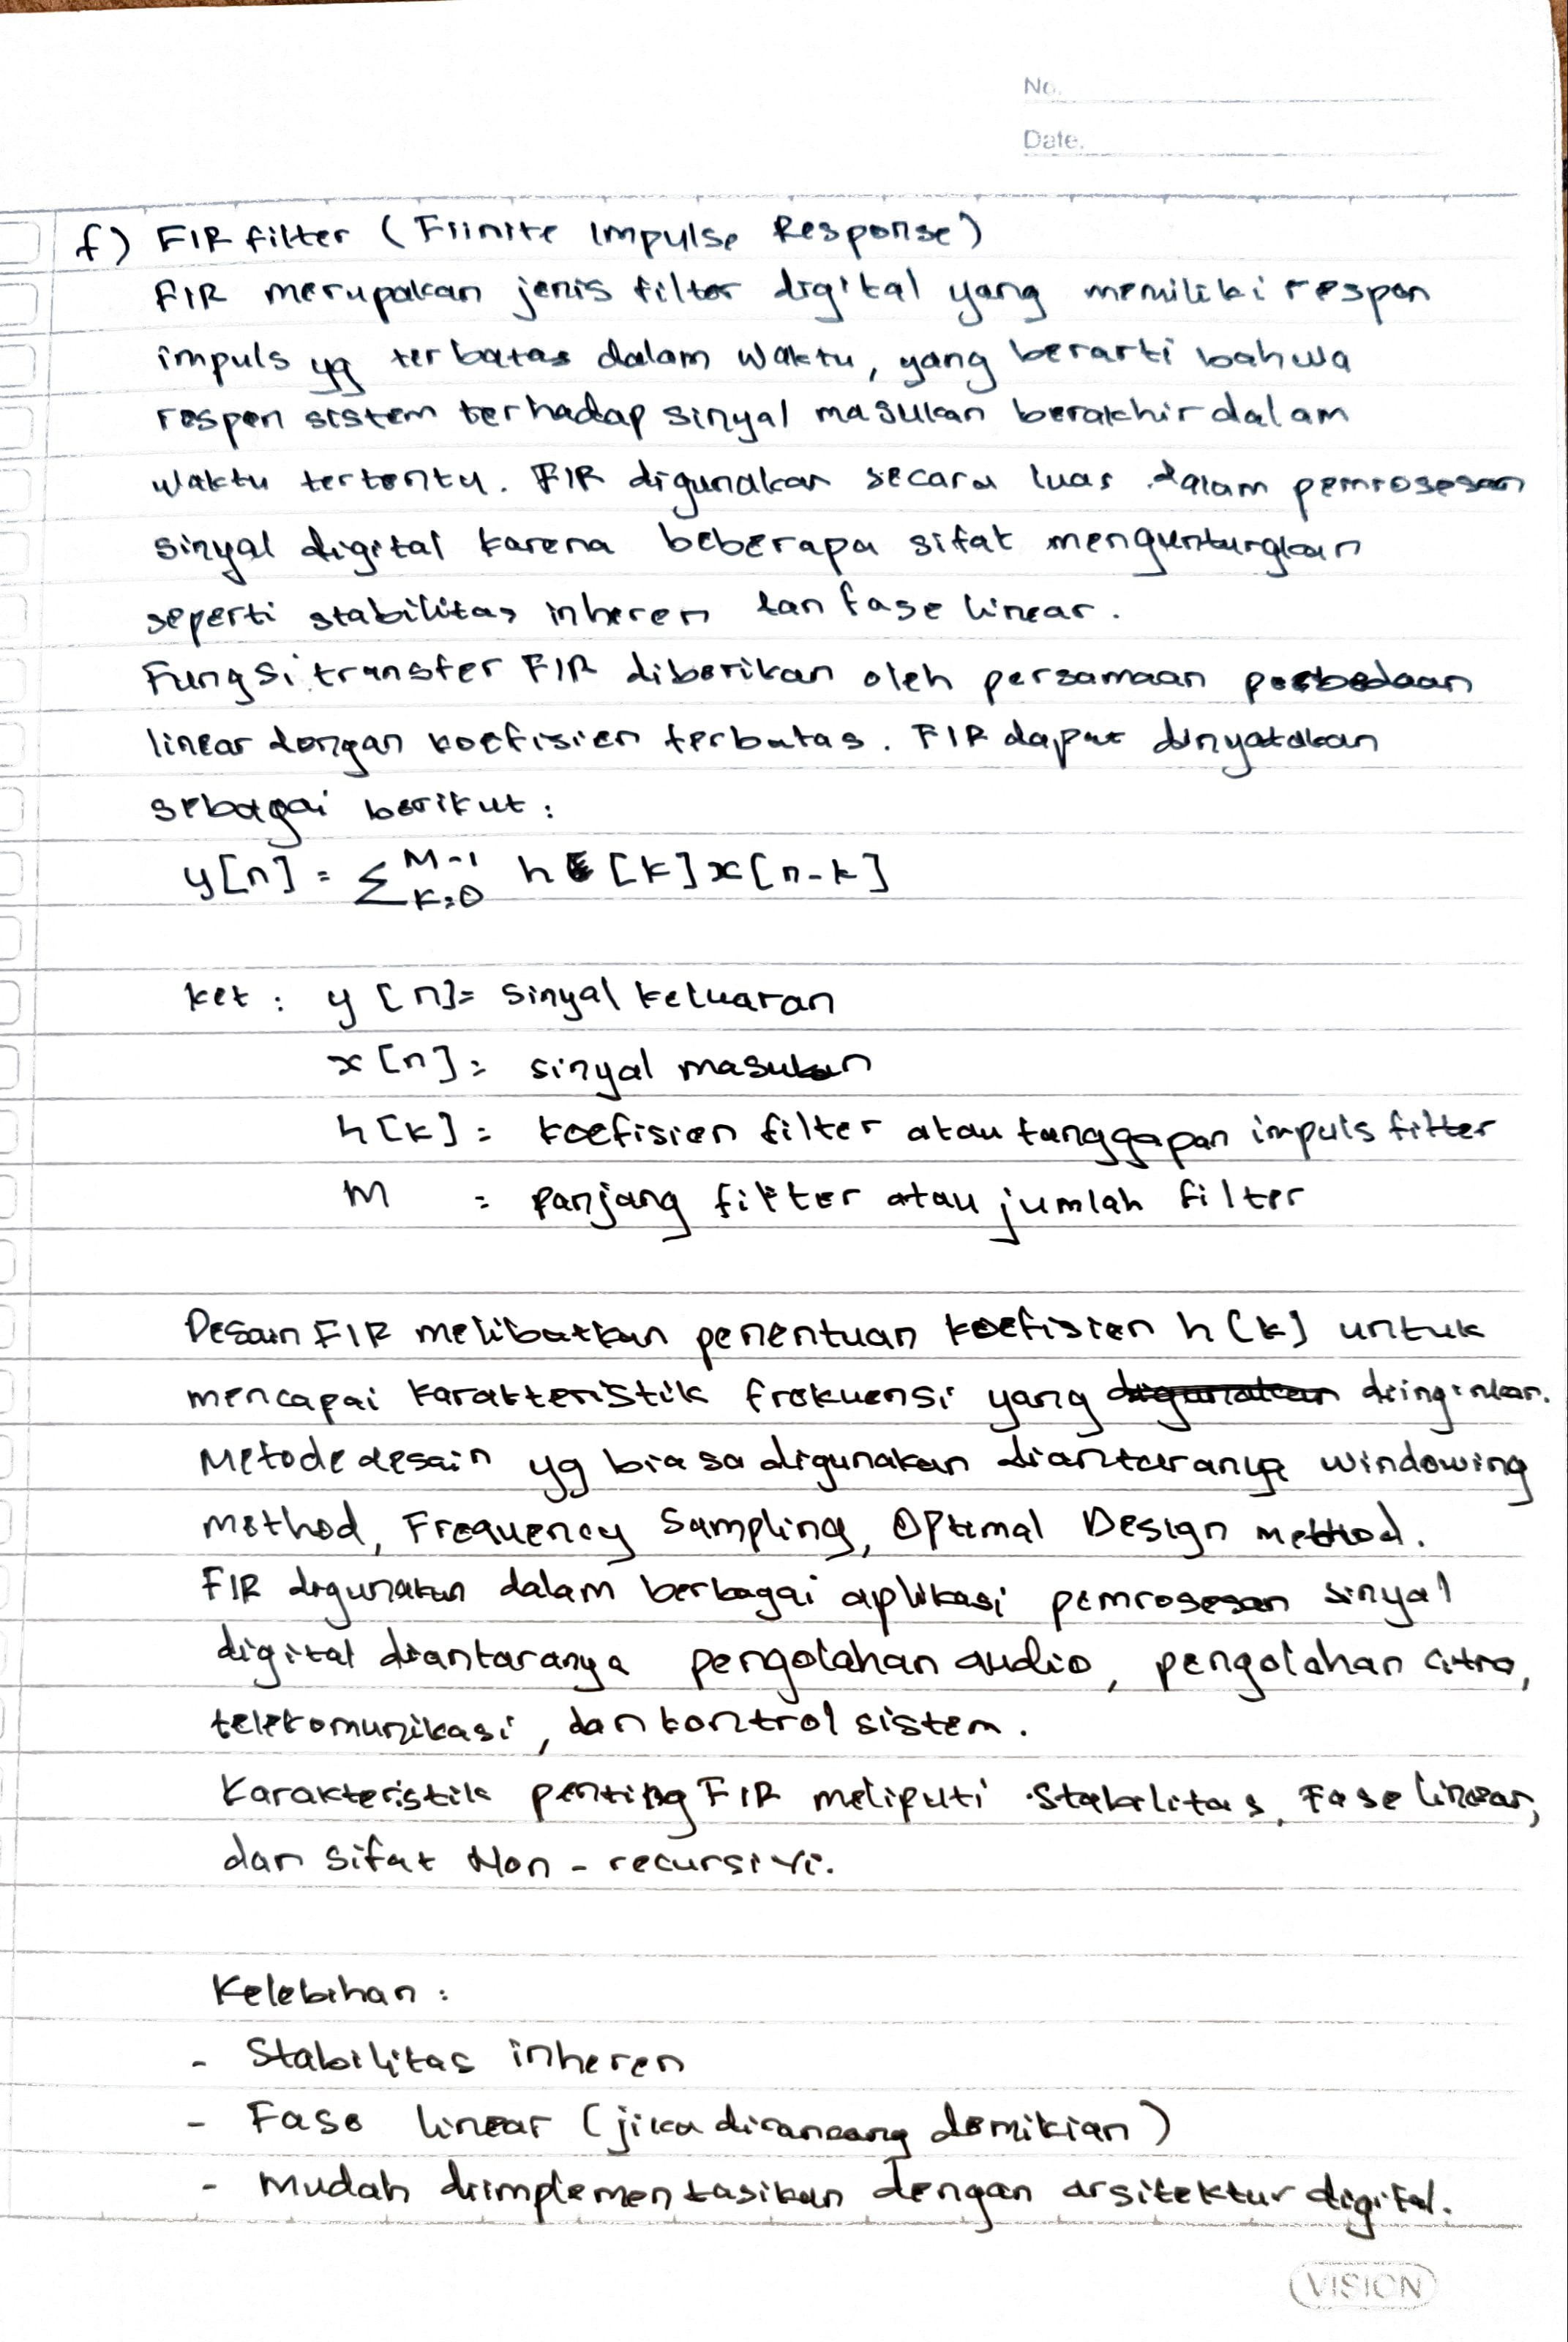 No.
Date.
f) FIR filter (Fiinite Impulse Response)
FIR merupakan jenis filter digital yang memiliki respon
impuls yg terbatas dalam waktu, yang berarti bahwa
respon sistem terhadap sinyal masukan berakhir dalam
waktu tertentu. FIR digunakan secara luas dalam pemrosesan
sinyal digital karena beberapa sifat menguntungkan
seperti stabilitas inheren dan fase linear.
Fungsi transfer FIR diberikan oleh persamaan perbedaan
linear dengan koefisien terbatas. FIR dapat dinyatakan
sebagai berikut:
y[n] = ∑ᴹ⁻¹ₖ₌₀ h[k]x[n-k]
ket : y[n]= sinyal keluaran
x[n]= sinyal masukan
h[k]= koefisien filter atau tanggapan impuls filter
M = panjang filter atau jumlah filter
Desain FIR melibatkan penentuan koefisien h[k] untuk
mencapai karakteristik frekuensi yang diinginkan.
Metode desain yg biasa digunakan diantaranya windowing
method, Frequency Sampling, Optimal Design method.
FIR digunakan dalam berbagai aplikasi pemrosesan sinyal
digital diantaranya pengolahan audio, pengolahan citra,
telekomunikasi, dan kontrol sistem.
Karakteristik penting FIR meliputi stabilitas, Fase linear,
dan sifat Non-recursivi.
Kelebihan :
- Stabilitas inheren
- Fase linear (jika dirancang demikian)
- Mudah diimplementasikan dengan arsitektur digital.
VISION